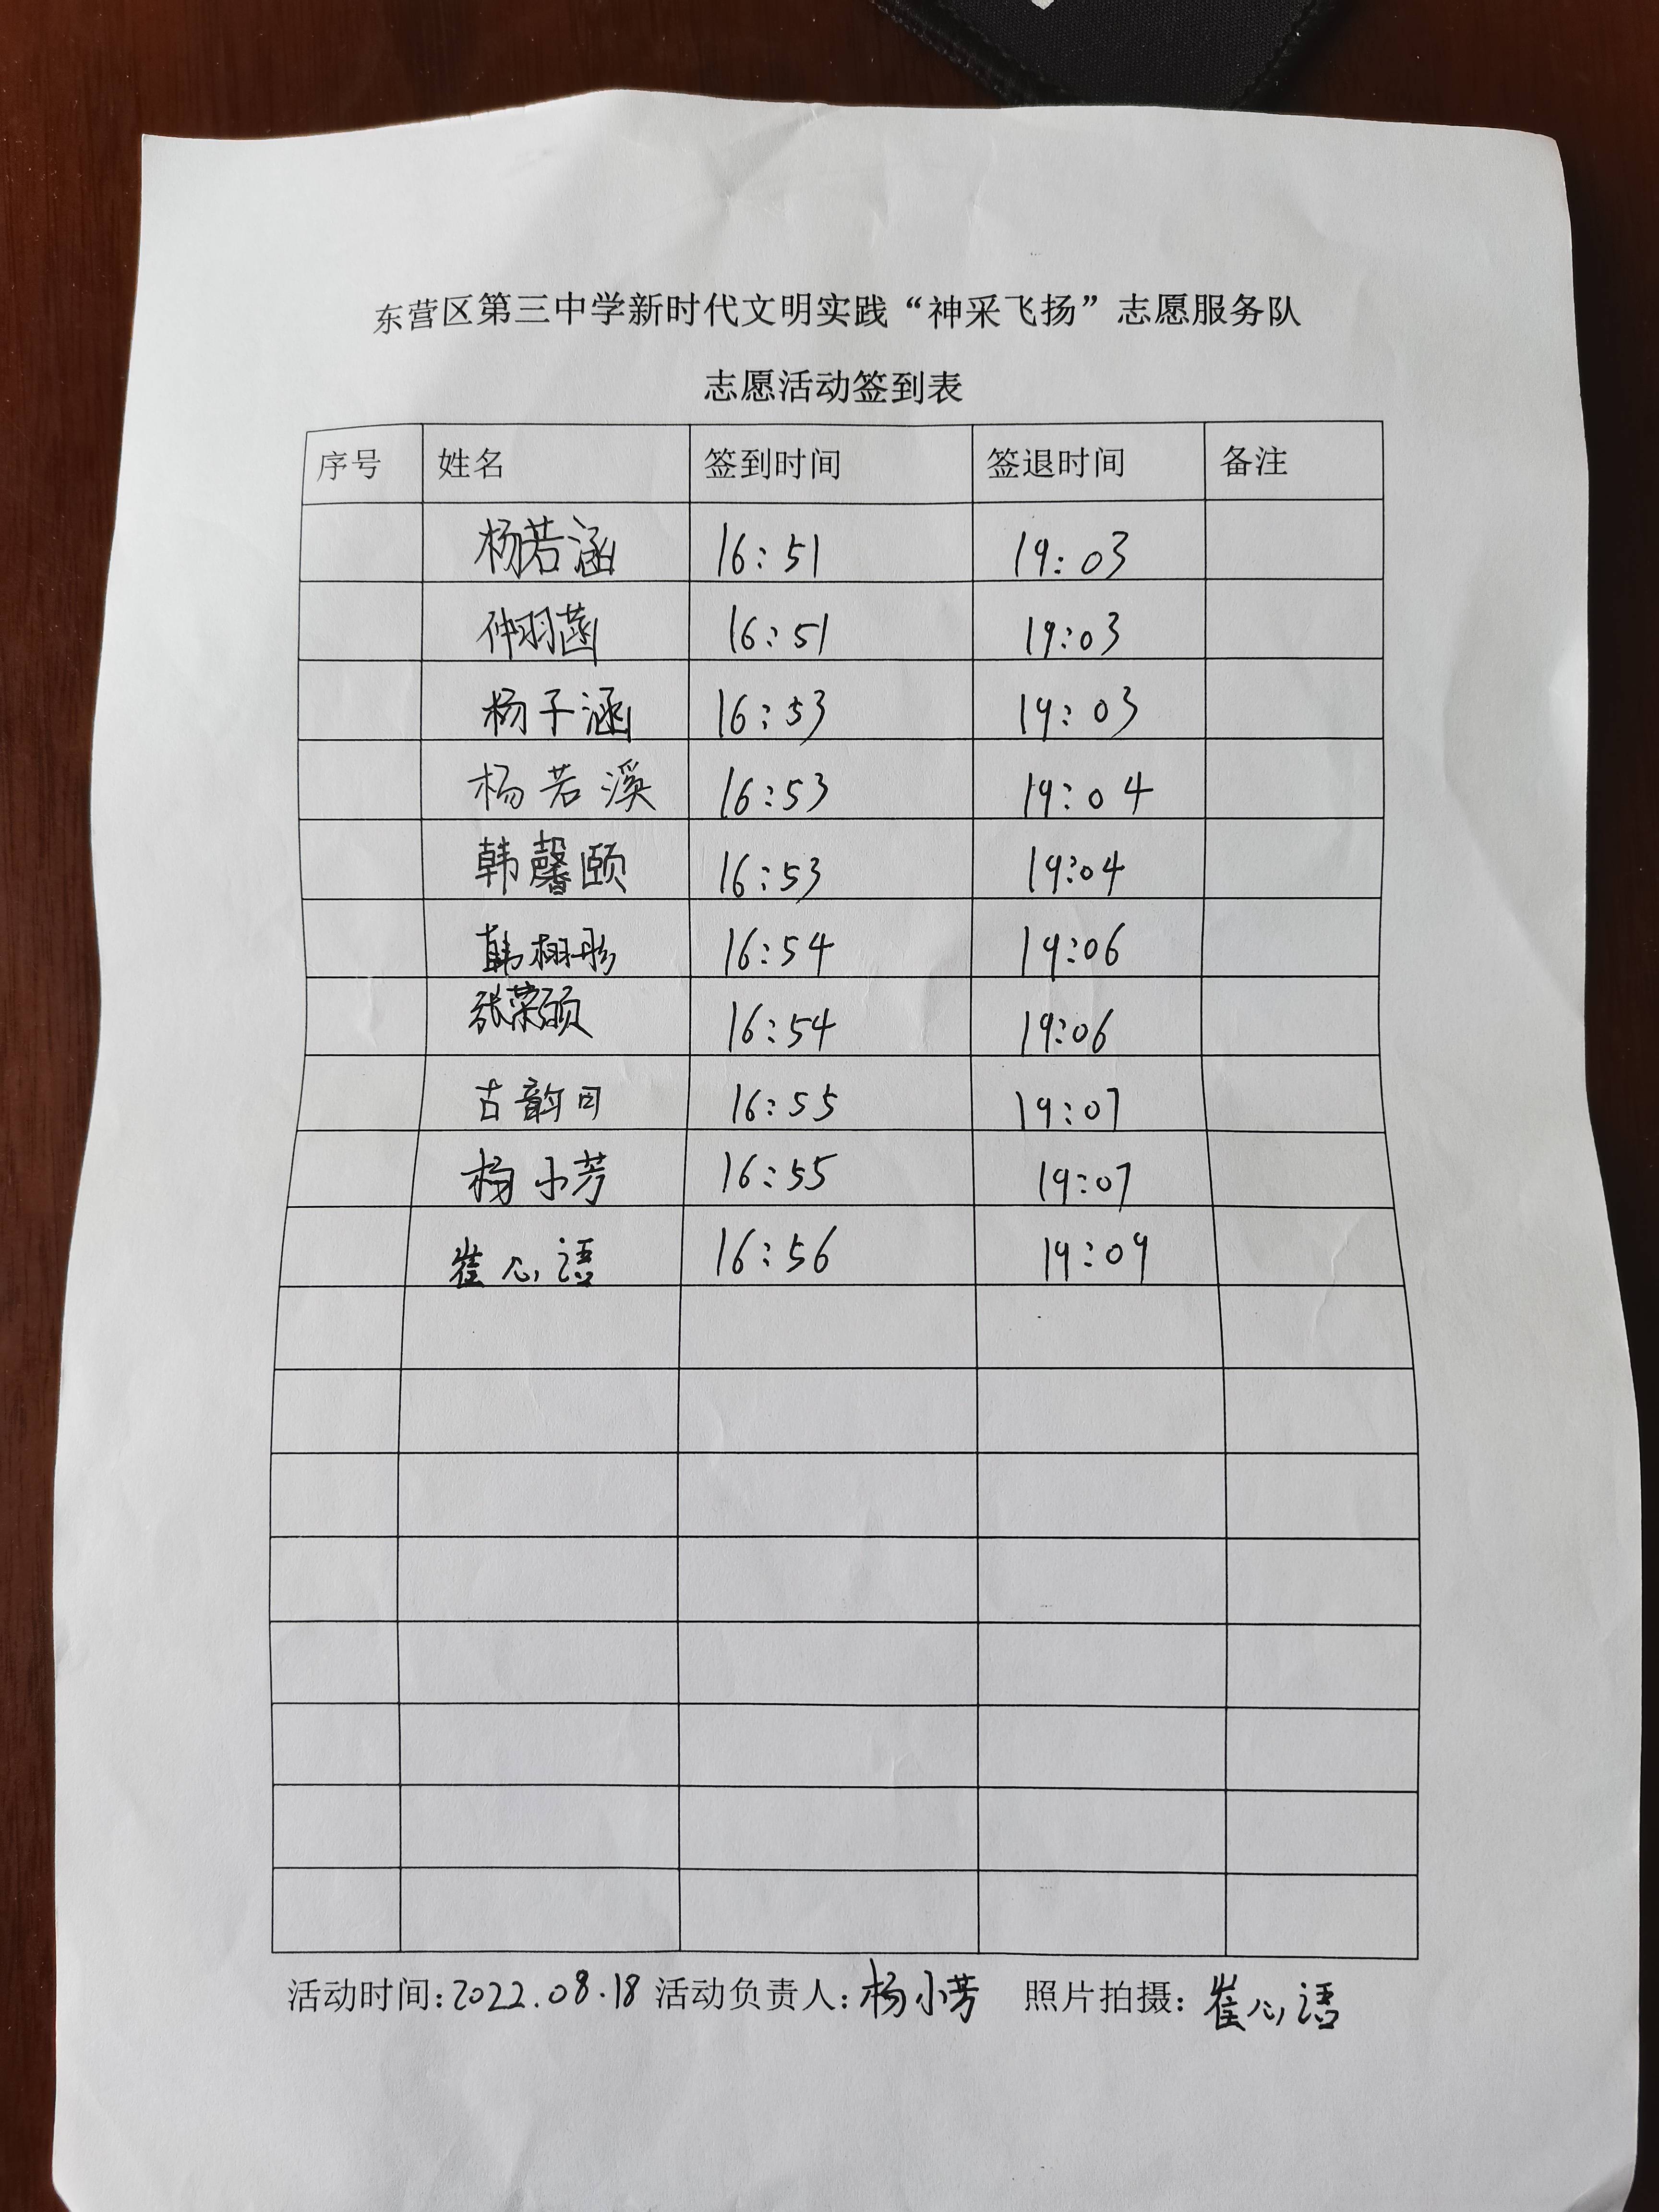 东营区第三中学新时代文明实践“神采飞扬”志愿服务队
志愿活动签到表
序号 姓名 签到时间 签退时间 备注
杨若涵 16:51 19:03
仲羽菡 16:51 19:03
杨子涵 16:53 19:03
杨若溪 16:53 19:04
韩馨颐 16:53 19:04
韩栩彤 16:54 19:06
张荣硕 16:54 19:06
古韵 16:55 19:07
杨小芳 16:55 19:07
崔心语 16:56 19:09
活动时间:2022.08.18 活动负责人:杨小芳 照片拍摄:崔心语